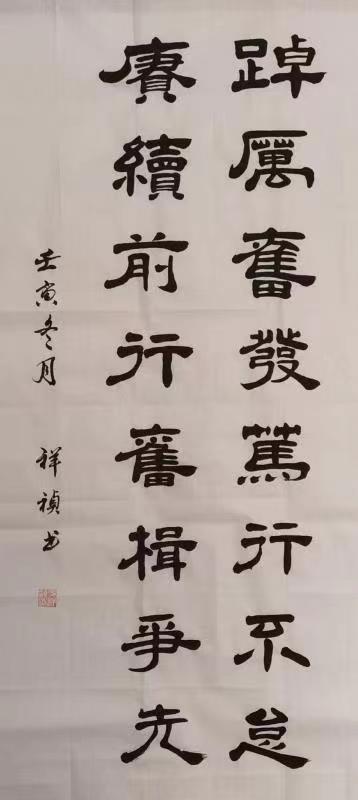 踔厲奮發篤行不怠
賡續前行奮楫爭先
壬寅冬月 祥禎书